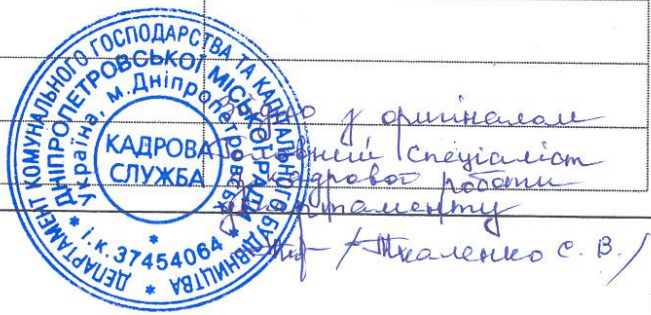 ДЕПАРТАМЕНТ КОМУНАЛЬНОГО ГОСПОДАРСТВА ТА КАПІТАЛЬНОГО БУДІВНИЦТВА *
ДНІПРОПЕТРОВСЬКОЇ МІСЬКОЇ РАДИ
* і.к. 37454064 *
Україна, м.Дніпропетровськ
*
КАДРОВА
СЛУЖБА
Згідно з оригіналом
Головний спеціаліст
з кадрової роботи
департаменту
/Ткаленко С. В./